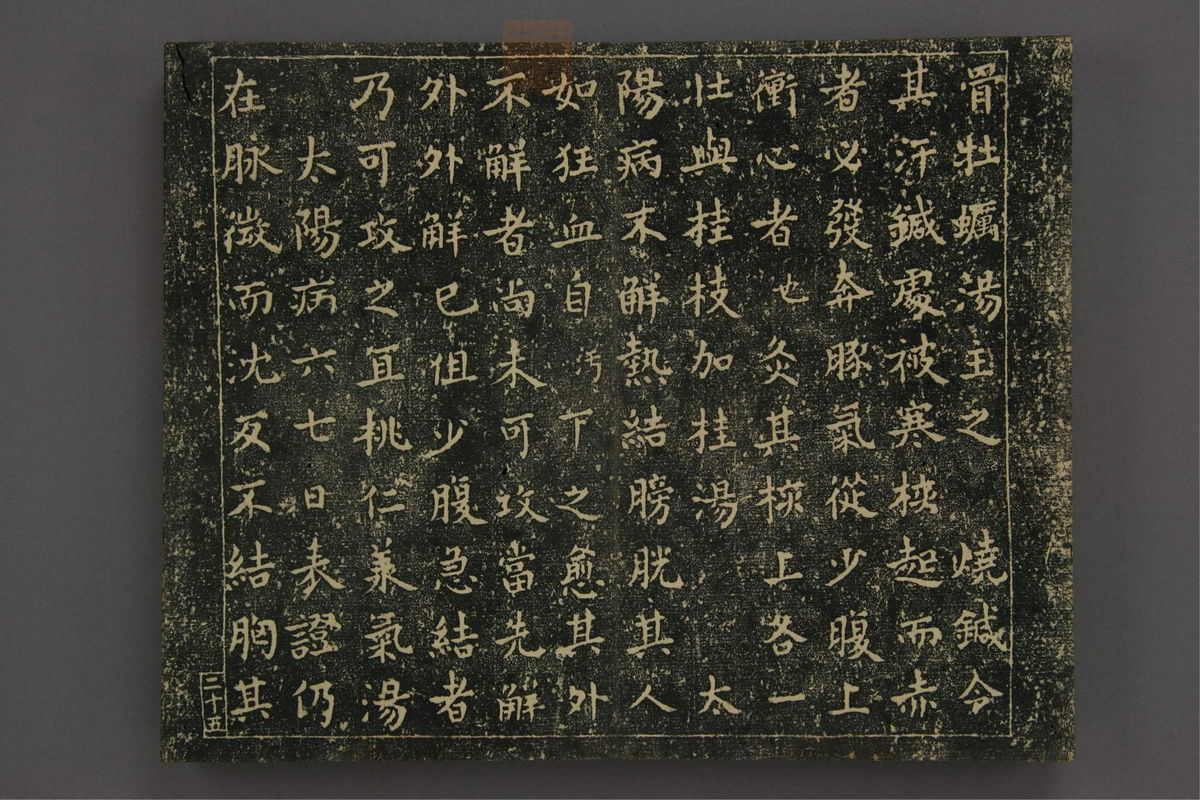 骨牡蠣湯主之　燒鍼令
其汗鍼處被寒核起而赤
者必發奔豚氣從少腹上
衝心者也灸其核上各一
壯與桂枝加桂湯　太
陽病不解熱結膀胱其人
如狂血自汚下之愈其外
不解者尚未可攻當先解
外外解已但少腹急結者
乃可攻之宜桃仁承氣湯
　太陽病六七日表證仍
在脉微而沈反不結胸其
二十五